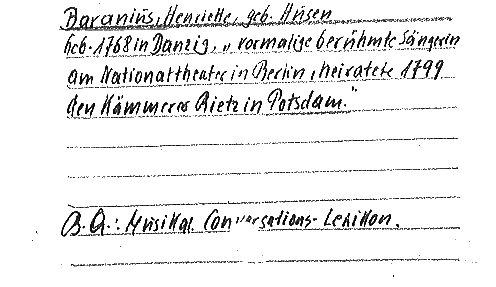 Baranius, Henriette, geb. Husen
geb. 1768 in Danzig, „vormalige berühmte Sängerin
am Nationaltheater in Berlin, heiratete 1799
den Kämmerer Rietz in Potsdam."
B.Q.: Musikal. Conversations-Lexikon.